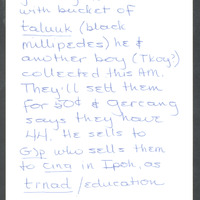 with bucket of
taluuk (black
millipedes) he &
another boy (Tkoy?)
collected this AM.
They'll sell them
for 50¢ & Gercang
says they have
44. He sells to
G)p who sells them
to Cina in Ipoh, as
trnad / education